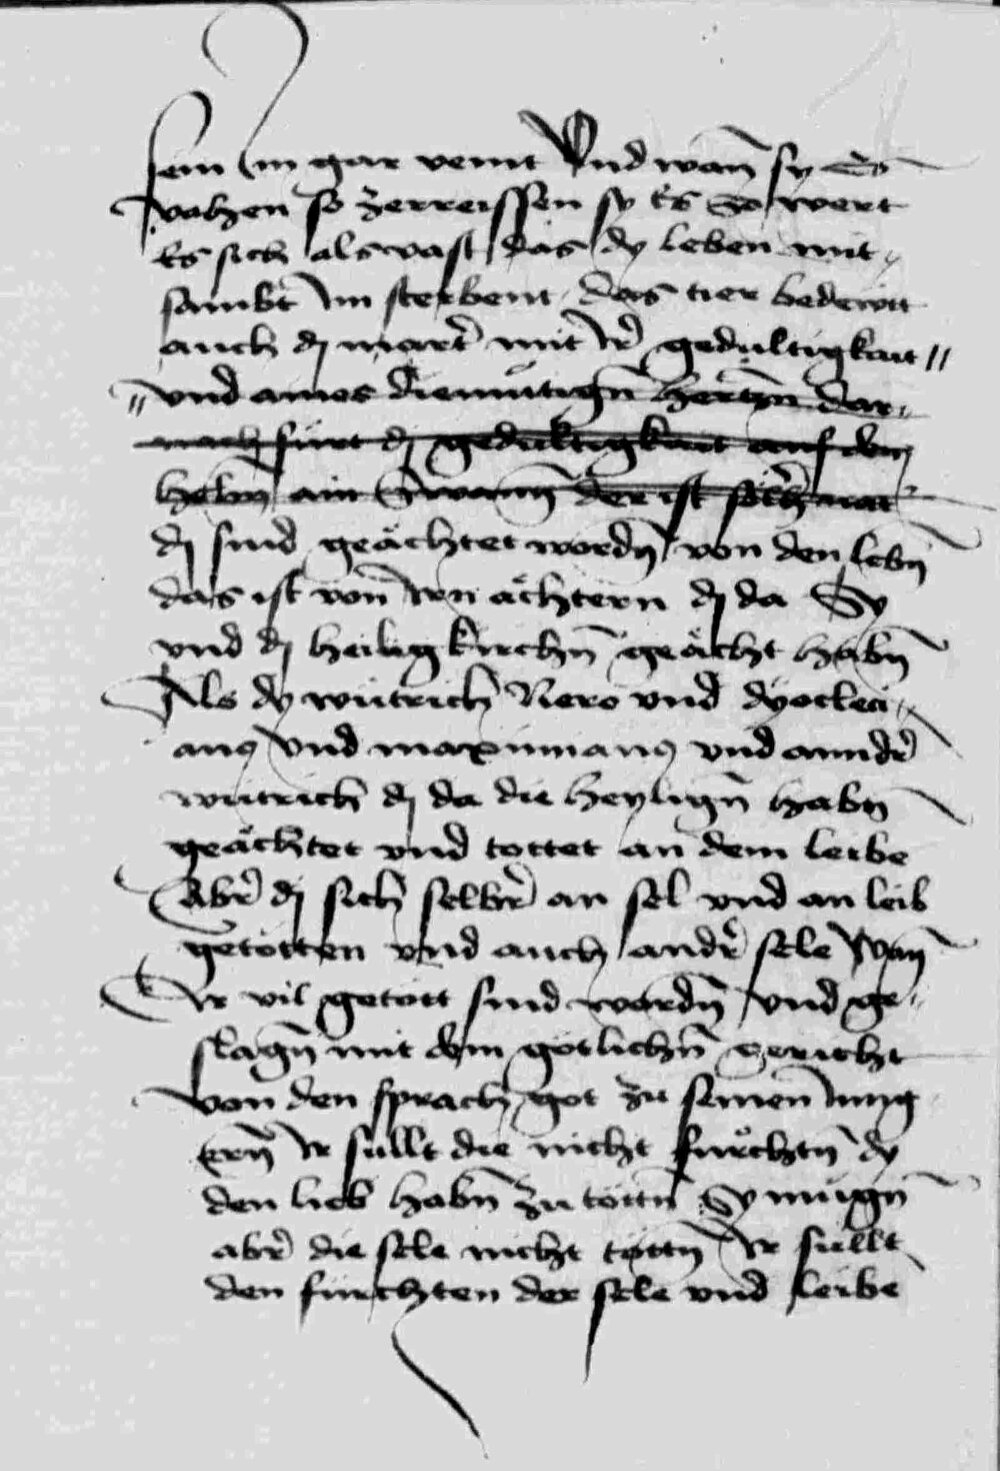 sein im gar veint Vnd wan̄ sy Es
vahen so zerreissen sy Es So wert
Es sich als vast das dy leben mit
sambt im sterbent das tier bedewtt
auch dy martr̄ mit Ir̄ gedultigkait //
// vnd aines diemutign̄ hertzn̄ dar
nach furt dy gedultigkait auf dem
helm̄ ain Swann̄ der ist solh̄ nat
dy sind geächtet wordn̄ von den lebn̄
das ist von Irn ächtern dy da Sy
vnd dy heilig kirchn̄ geächt habn̄
Als dy wutrich Nero vnd dyocleci
anꝰ vnd maximianꝰ vnd anndr̄
wutrich dy da die heylign̄ habn̄
geächtet vnd tottet an dem leibe
Abr̄ dy sich selbr̄ an sel vnd an leib
getotten vnd auch andr̄ sele Wan̄
Ir vil getott sind wordn̄ vnd ge
slagn̄ mit dem gotlichn̄ gericht
von den sprach got zu seinen Iung
ern̄ Ir sullt die nicht furchtn̄ dy
den lieb habn̄ zu tottn̄ Sy mugn̄
abr̄ die sele nicht tottn̄ Ir sullt
den furchten der sele vnd leibe